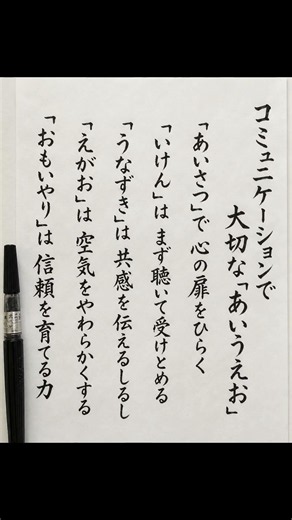 コミュニケーションで
大切な「あいうえお」
「あいさつ」で 心の扉をひらく
「いけん」は まず聴いて受けとめる
「うなずき」は 共感を伝えるしるし
「えがお」は 空気をやわらかくする
「おもいやり」は 信頼を育てる力